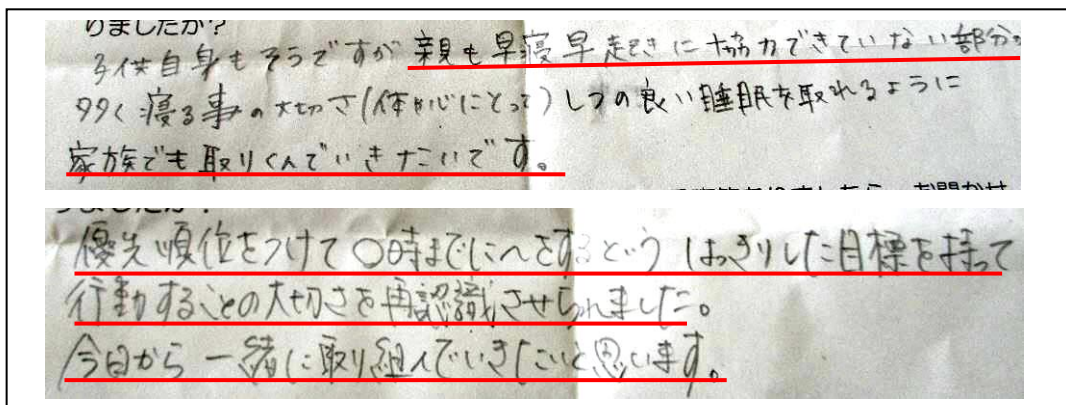 りましたか?
子供自身もそうですが親も早寝早起きに協力できていない部分が
多く寝る事の大切さ(体や心にとって)しつの良い睡眠を取れるように
家族でも取りくんでいきたいです。
優先順位をつけて〇時までに〜をするという はっきりした目標を持って
行動することの大切さを再認識させられました。
今日から一緒に取り組んでいきたいと思います。